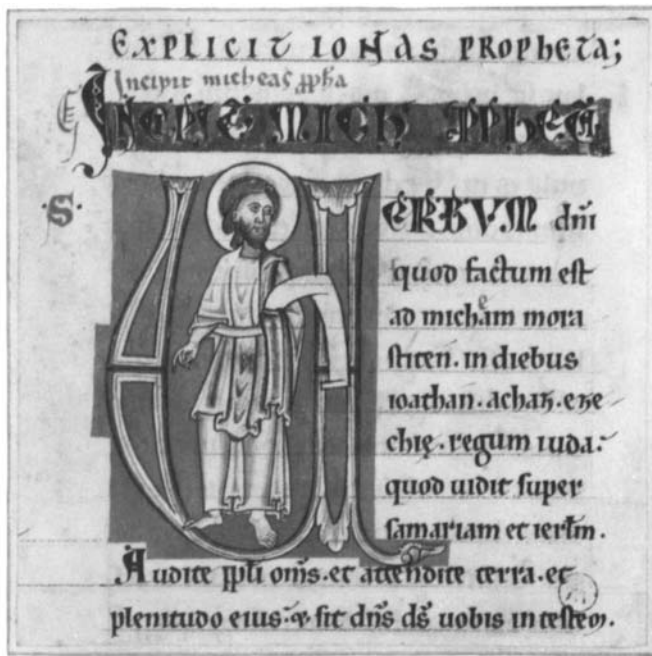 EXPLICIT IONAS PROPHETA;
Incipit micheas ꝓph̄a
INCIPIT MICH PPHETA
S.
VERBVM dn̄i
quod factum est
ad micheam mora
sticen. in diebus
ioathan. achaz. eze
chię. regum iuda:
quod uidit super
samariam et ierl̄m.
Audite ppl̄i om̄s. et attendite terra. et
plenitudo eius: & sit dn̄s ds̄ uobis in testem.